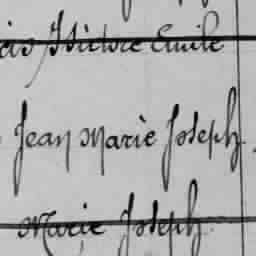 Victore Emile
Jean Marie Joseph
Marie Joseph